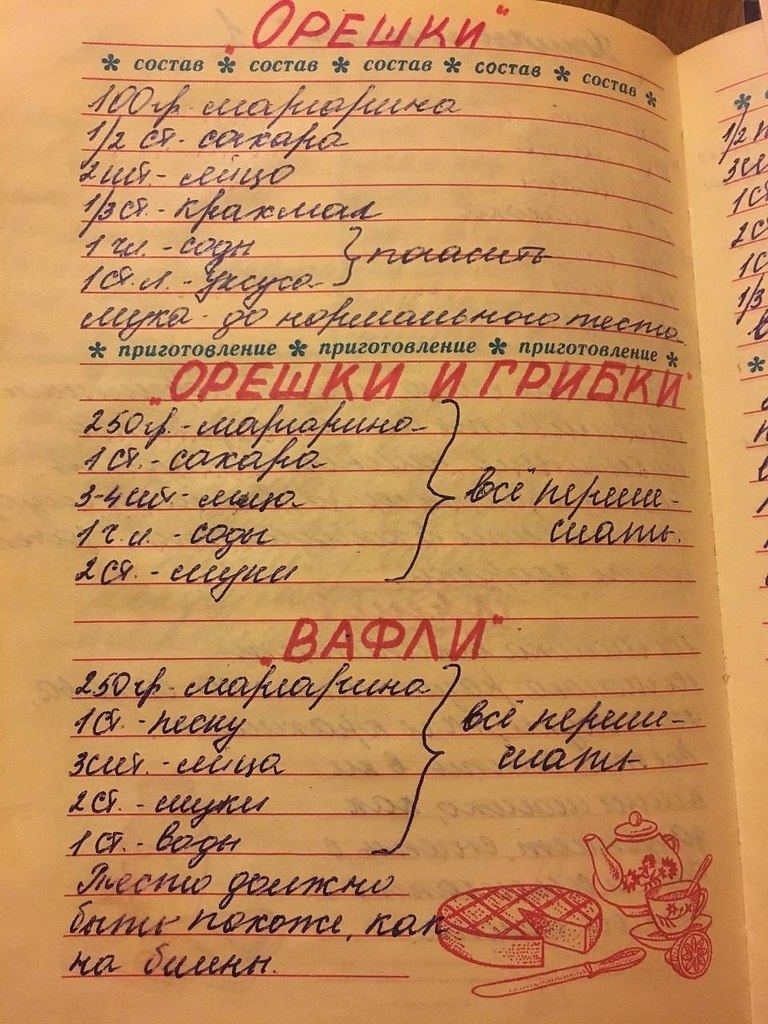 "ОРЕШКИ"
* состав * состав * состав * состав * состав *
100 гр. маргарина
1/2 ст. - сахара
2 шт. - яйцо
1/3 ст. - крахмал
1 ч.л. - соды } погасить
1 ст. л. - уксуса
мука - до нормального теста
* приготовление * приготовление * приготовление *
"ОРЕШКИ И ГРИБКИ"
250 гр. - маргарина
1 ст. - сахара
3-4 шт. - яйца } всё переме-
1 ч.л. - соды шать.
2 ст. - муки
"ВАФЛИ"
250 гр. маргарина
1 ст. - песку } всё переме-
3 шт. - яйца шать.
2 ст. - муки
1 ст. - воды
Тесто должно
быть похоже, как
на блины.
1/2
3
1 ст
2 ст
1 с
1/3